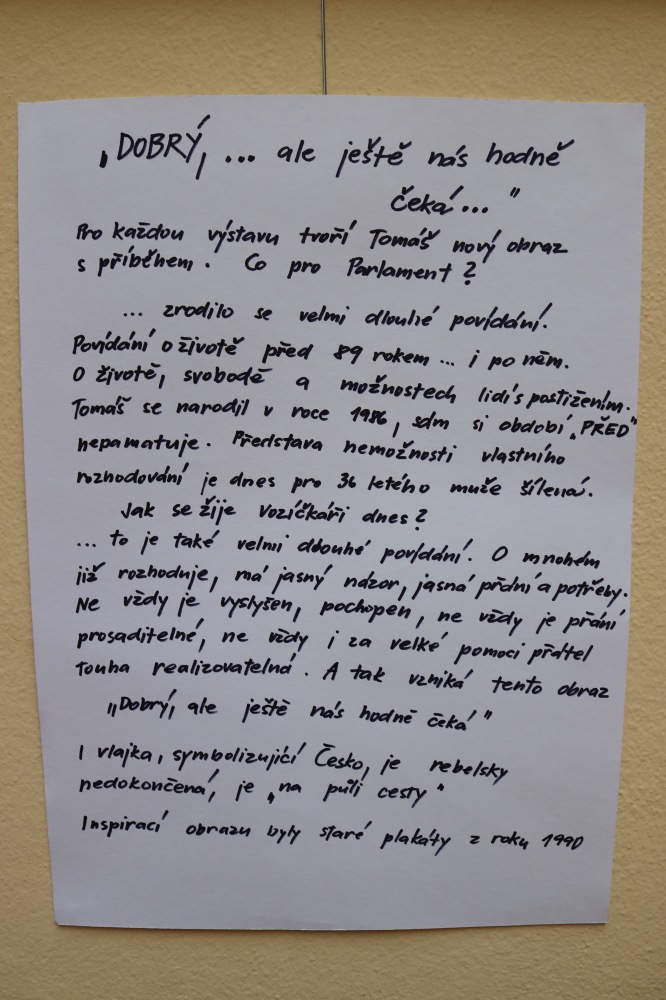 „DOBRÝ, ... ale ještě nás hodně
čeká..."
Pro každou výstavu tvoří Tomáš nový obraz
s příběhem. Co pro Parlament?
... zrodilo se velmi dlouhé povídání.
Povídání o životě před 89 rokem ... i po něm.
O životě, svobodě a možnostech lidí s postižením.
Tomáš se narodil v roce 1986, sám si období „PŘED"
nepamatuje. Představa nemožnosti vlastního
rozhodování je dnes pro 36 letého muže šílená.
Jak se žije vozíčkáři dnes?
... to je také velmi dlouhé povídání. O mnohém
již rozhoduje, má jasný názor, jasná přání a potřeby.
Ne vždy je vyslyšen, pochopen, ne vždy je přání
prosaditelné, ne vždy i za velké pomoci přátel
touha realizovatelná. A tak vzniká tento obraz
„Dobrý, ale ještě nás hodně čeká"
I vlajka, symbolizující Česko, je rebelsky
nedokončená, je „na půli cesty"
Inspirací obrazu byly staré plakáty z roku 1990